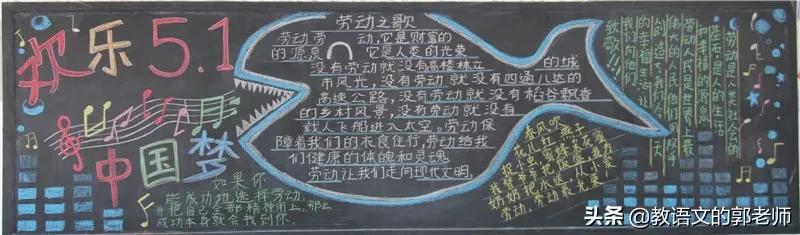 欢乐5.1
中国梦
如果你
能成功地选择劳动，
并把自己全部精神用上，那么
成功本身就会找到你。
劳动之歌
劳动，劳动，它是财富的
的源泉 它是人类的光荣
没有劳动就没有高楼林立的城
市风光，没有劳动就没有四通八达的
高速公路，没有劳动就没有稻谷飘香
的乡村风景，没有劳动就没有
载人飞船进入太空。劳动保
障着我们的衣食住行，劳动给我
们健康的体魄和灵魂
劳动让我们走向现代文明。
春风吹
花儿红 燕子
捉虫蜜蜂采花蜜
我帮爷爷把饭盛，为
奶奶把水送，人人爱
劳动，劳动最光荣！
劳动是人类社会的
基石，是人的生活
和幸福的源泉
劳动人民是世界上最
伟大的人民他们用双手
创造了我们今天
的幸福生活
我们向他们
致敬！！！
头条 @教语文的郭老师